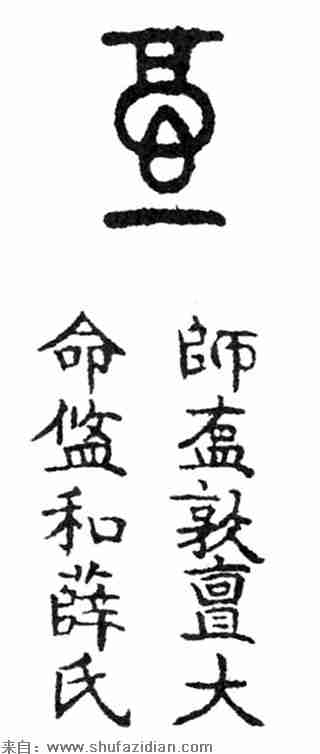 師敦亶大
命和薛氏
来自：www.shufazidian.com